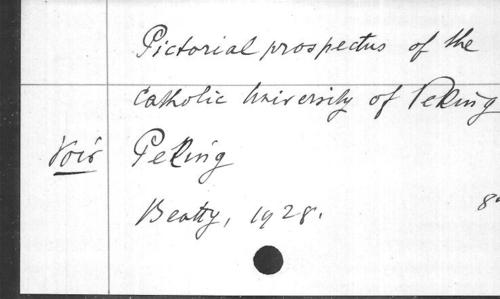 Pictorial prospectus of the
Catholic University of Peking
Voir Peking
Beatty, 1928. 8°